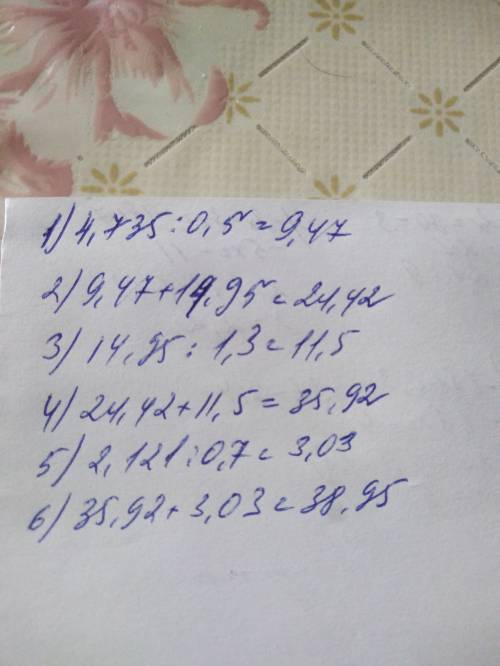 1) 4,735:0,5=9,47
2) 9,47+14,95=24,42
3) 14,95:1,3=11,5
4) 24,42+11,5=35,92
5) 2,121:0,7=3,03
6) 35,92+3,03=38,95